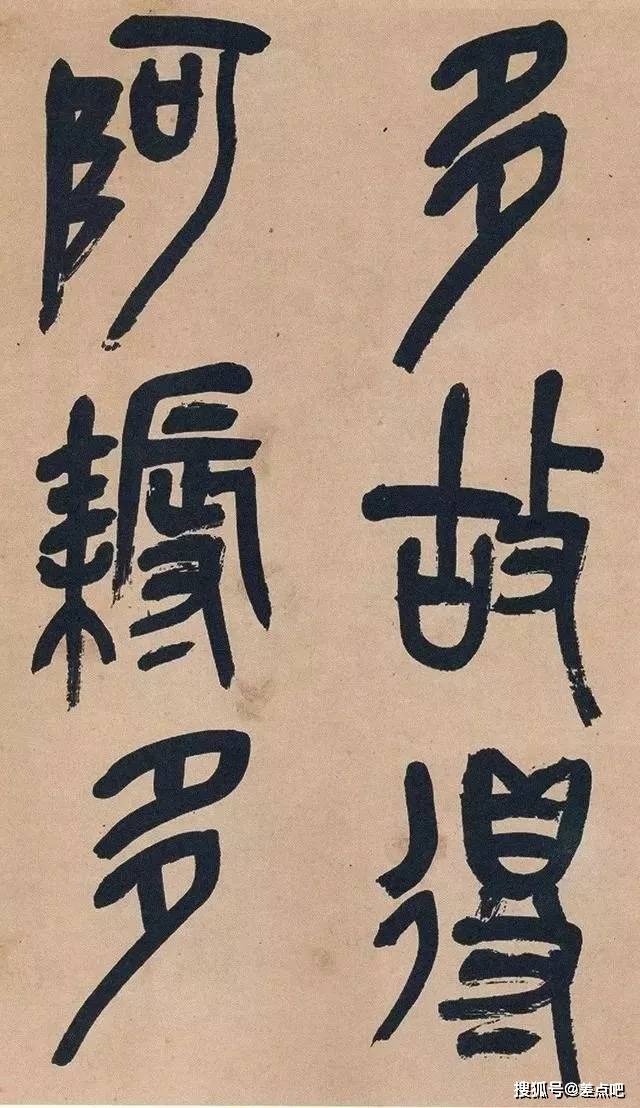 多故得
阿耨多
搜狐号@差点吧